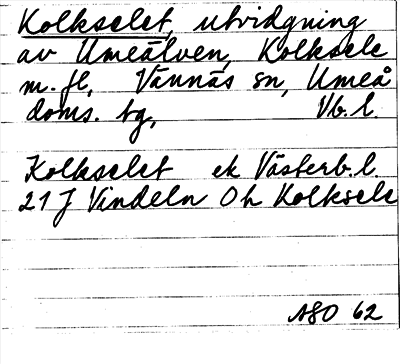 Kolkselet, utvidgning
av Umeälven, Kolksele
m. fl, Vännäs sn, Umeå
doms. tg, Vb. l.
Kolkselet ek Västerb. l.
21 J Vindeln Oh Kolksele
ASO 62